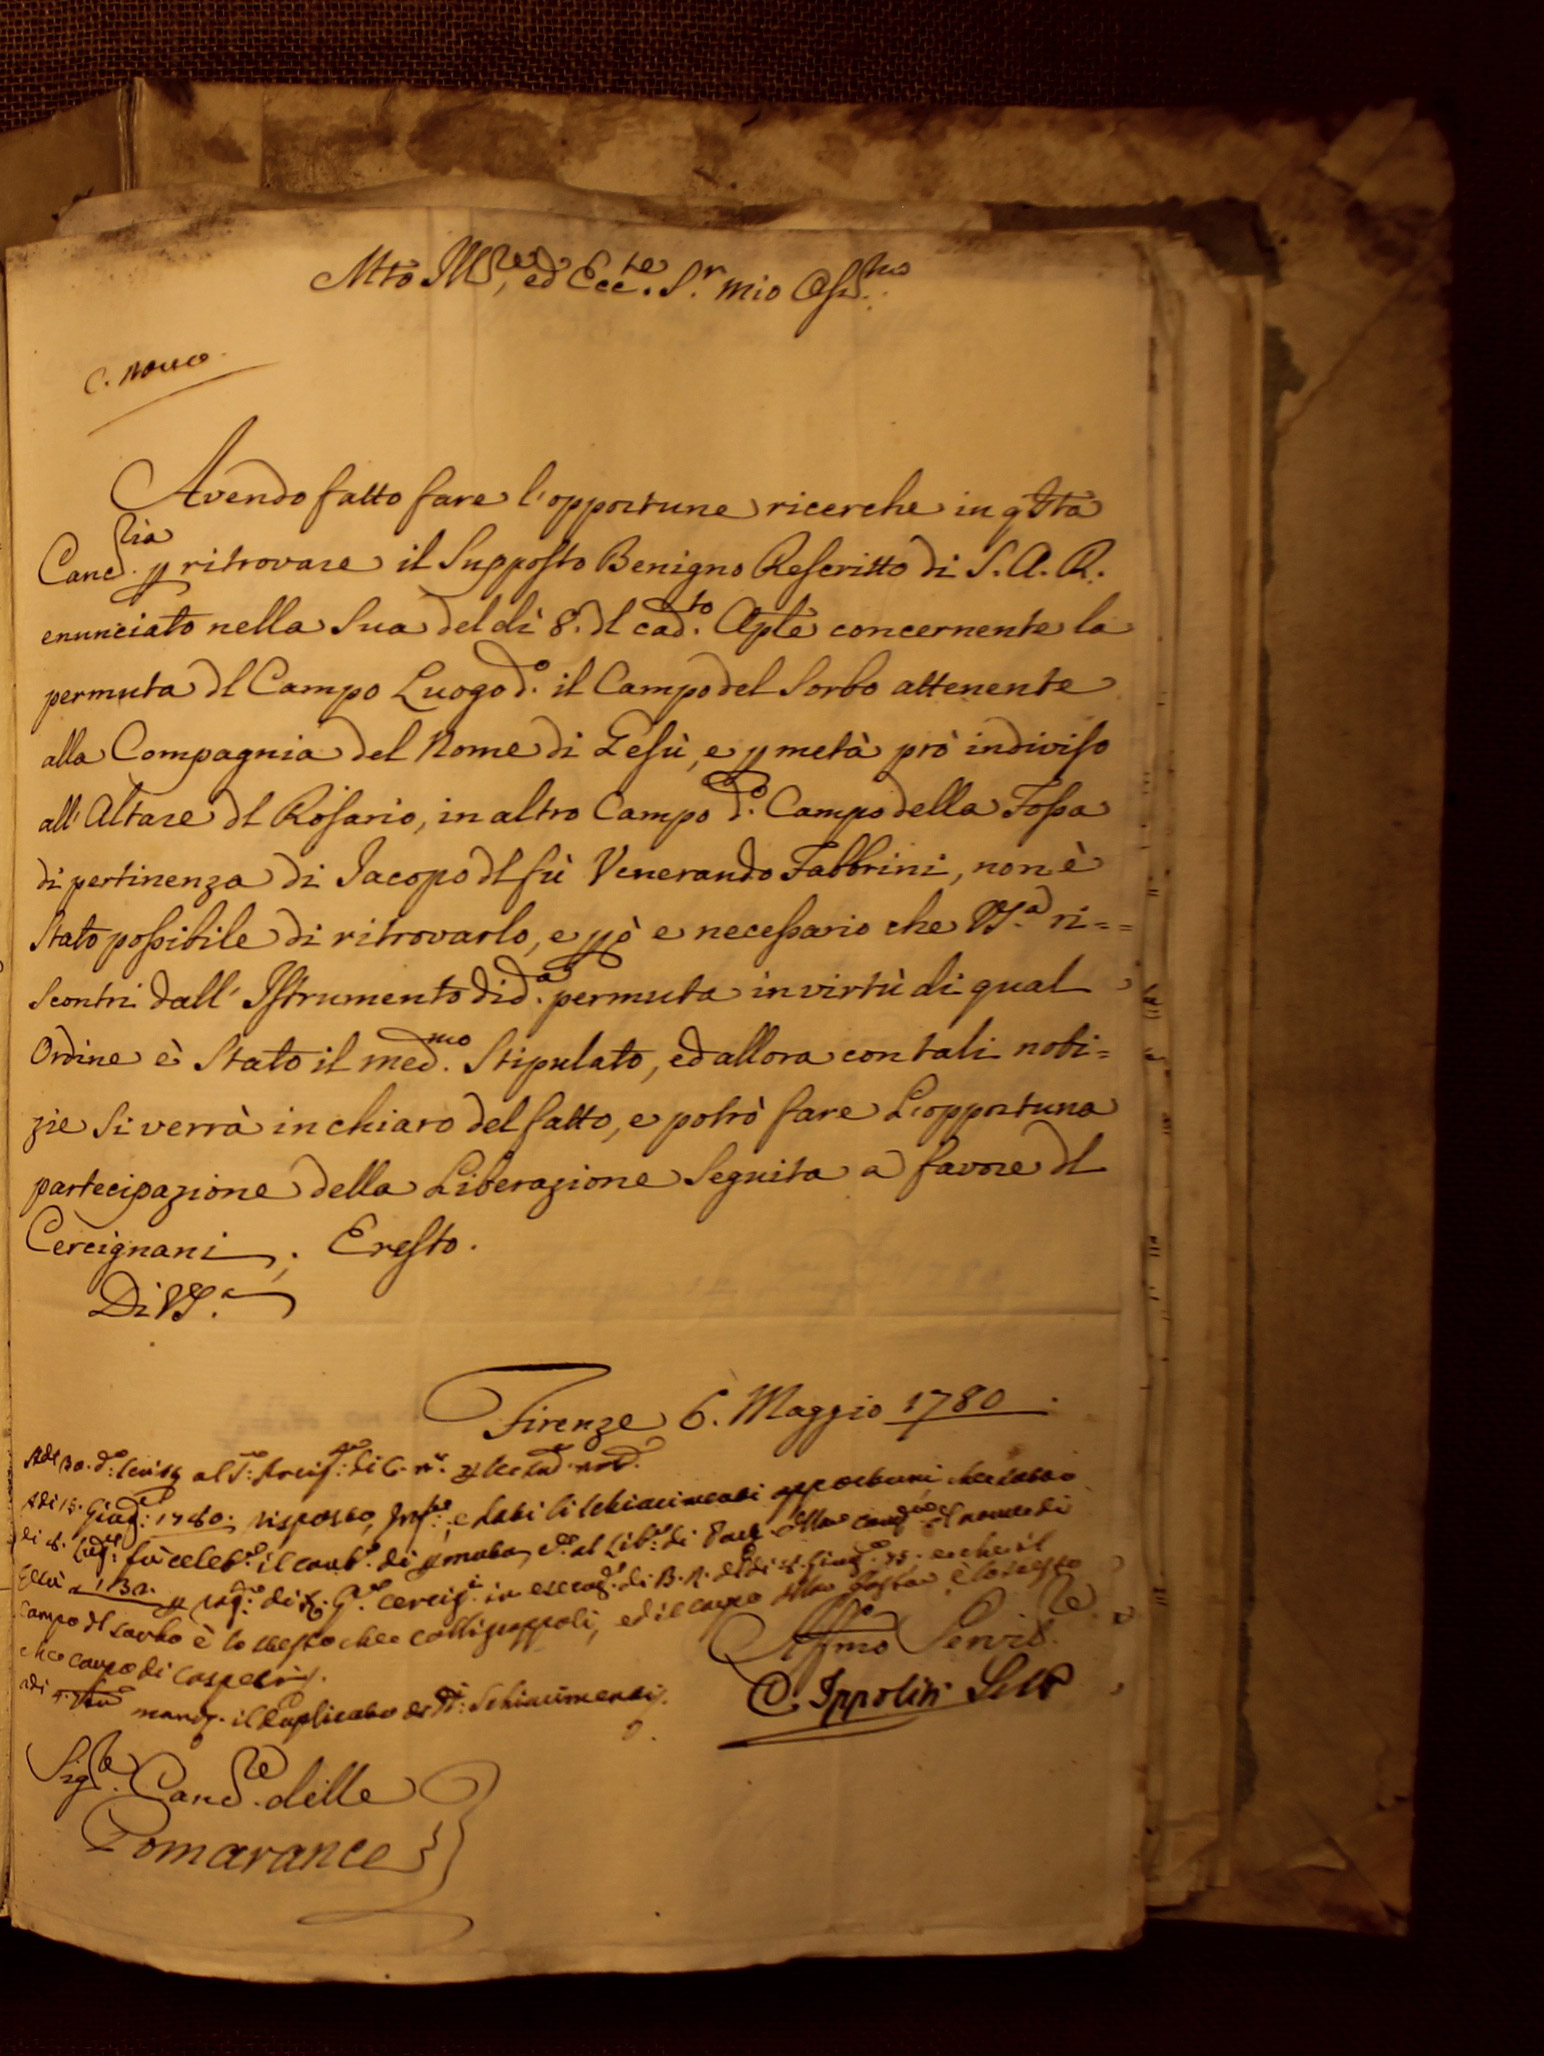 Mto Ill.re, ed Ecc.te S.r mio Oss.mo
C. nove
Avendo fatto fare l'opportune ricerche in qsta
Canc.ria p ritrovare il Supposto Benigno Rescritto di S. A. R.
enunciato nella Sua del dì 8. dl cad.to Aple concernente la
permuta dl Campo Luogo d.o il Campo del Sorbo attenente
alla Compagnia del Nome di Gesù, e p metà prò indiviso
all'Altare dl Rosario, in altro Campo d.o Campo della Fossa
di pertinenza di Jacopo dl fù Venerando Fabbrini, non è
Stato possibile di ritrovarlo, e pò e necessario che VS.a ri=
scontri dall'Istrumento di d.a permuta in virtù di qual
Ordine è Stato il med.mo Stipulato, ed allora con tali noti=
zie si verrà in chiaro del fatto, e potrò fare l'opportuna
partecipazione della Liberazione Seguita a favore dl
Cercignani; E resto.
Di VS.a
Firenze 6. Maggio 1780
Adi 30. d.o al
Adi 15. Giug.o 1780. risposto, e dati li schiarimenti opportuni, che
di fù celeb.o il di pmuta, al Lib.o di della nome di
Gesù a 132. p di in di B. R. dl dì e che il
Campo dl Sorbo è lo stesso che ed il campo della Fossa è lo stesso
che campo di
adi mand. il duplicato de d.i Schiarimenti.
Aff.mo Servid.re
C. Ippoliti
Sig.re Canc.re delle
Pomarance